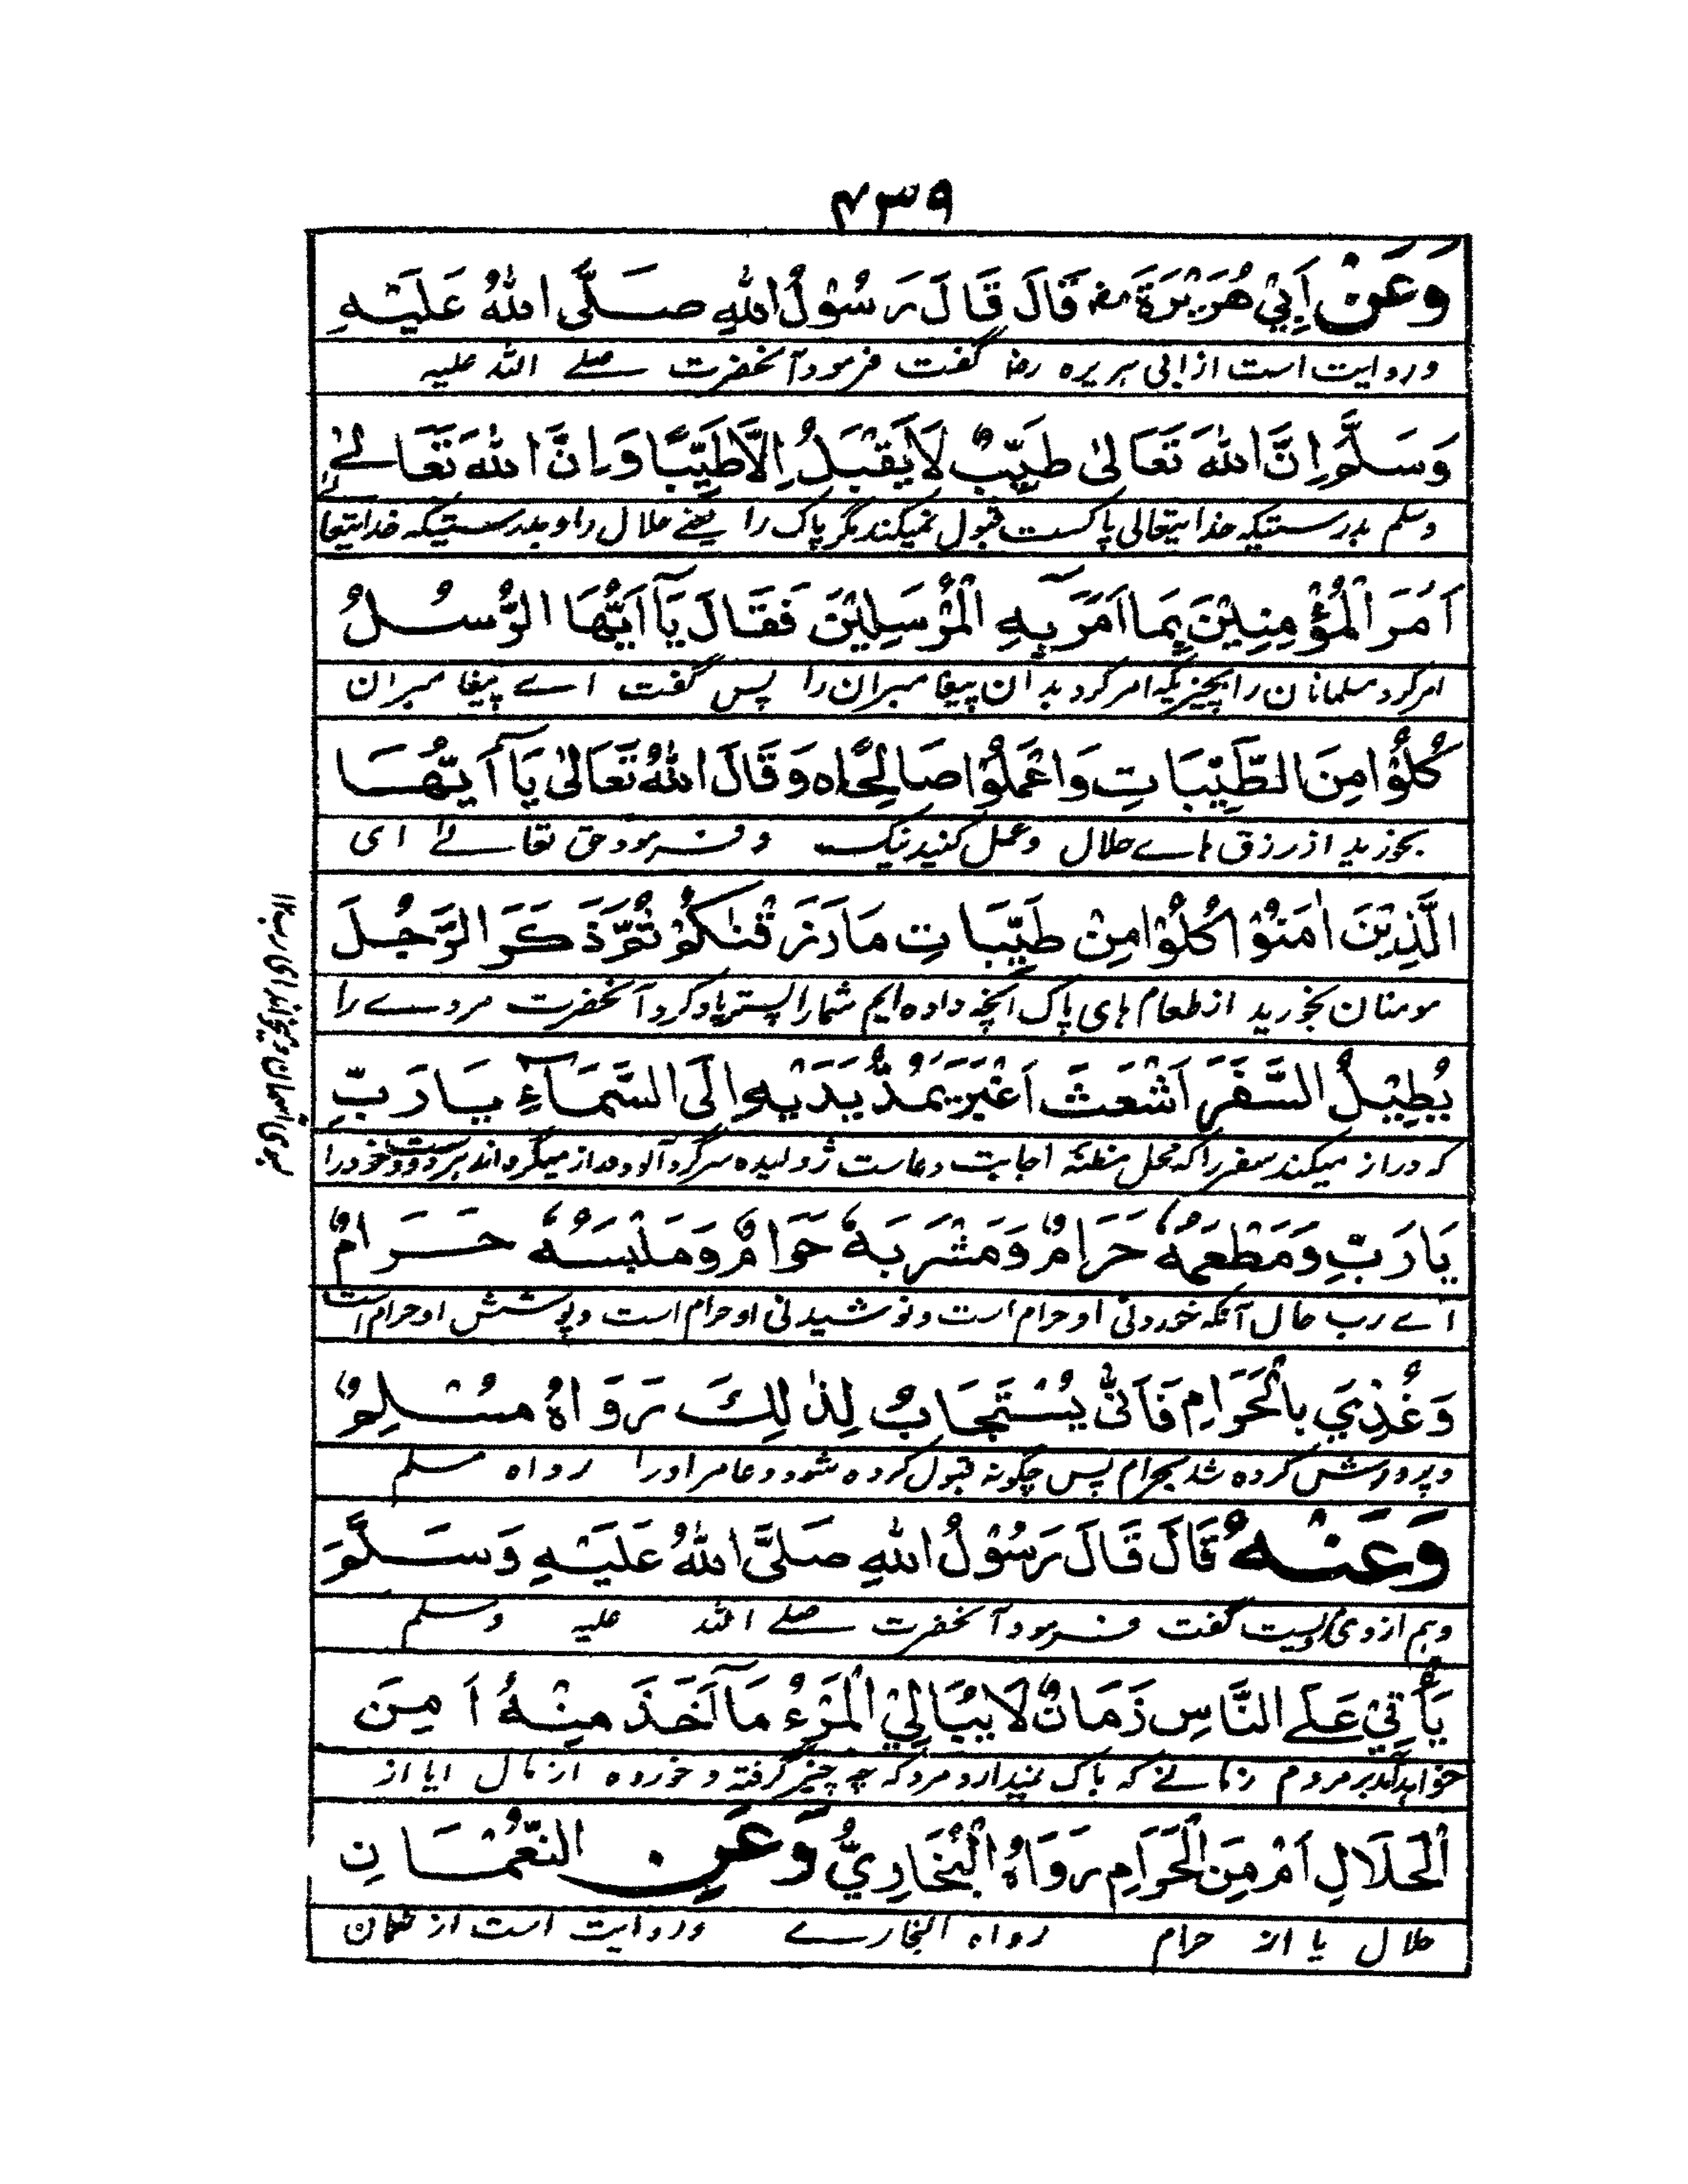 ۴۳۹
وَعَنْ اَبِيْ هُرَيْرَةَ رض قَالَ قَالَ رَسُوْلُ اللهِ صَلَّى اللهُ عَلَيْهِ
و روایت است از ابی ہریرہ رضا گفت فرمود آنحضرت صلے اللہ علیہ
وَسَلَّمَ اِنَّ اللهَ تَعَالىٰ طَيِّبٌ لَا يَقْبَلُ اِلَّا طَيِّبًا وَاِنَّ اللهَ تَعَالےٰ
وسلم بدرستیکہ خدایتعالی پاکست قبول نمیکند مگر پاک را یعنے حلال را و بدرستیکہ خدایتعالے
اَمَرَ الْمُؤْمِنِيْنَ بِمَا اَمَرَ بِهِ الْمُرْسَلِيْنَ فَقَالَ يَآ اَيُّهَا الرُّسُلُ
امر کرد مسلمانان را بچیزیکہ امر کرد بدان پیغامبران را پس گفت اے پیغامبران
كُلُوْا مِنَ الطَّيِّبَاتِ وَاعْمَلُوْا صَالِحًا ه وَقَالَ اللهُ تَعَالىٰ يَآ اَيُّهَا
بخورید از رزق ہاے حلال و عمل کنید نیک و فرمود حق تعالےٰ ای
الَّذِيْنَ اٰمَنُوْا كُلُوْا مِنْ طَيِّبَاتِ مَا رَزَقْنٰكُمْ ثُمَّ ذَكَرَ الرَّجُلَ
مومنان بخورید از طعام ہای پاک آنچہ دادہ ایم شمارا پستر یاد کرد آنحضرت مردے را
يُطِيْلُ السَّفَرَ اَشْعَثَ اَغْبَرَ يَمُدُّ يَدَيْهِ اِلَى السَّمَآءِ يَا رَبِّ
کہ دراز میکند سفر را کہ محل مظنہ اجابت دعاست ژولیدہ سر گرد آلودہ دراز میکرداند ہر دو دست خود را
يَا رَبِّ وَمَطْعَمُهٗ حَرَامٌ وَمَشْرَبُهٗ حَرَامٌ وَمَلْبَسُهٗ حَرَامٌ
اے رب حال آنکہ خوردنی او حرام است و نوشیدنی او حرام است و پوشش او حرام است
وَغُذِيَ بِالْحَرَامِ فَاَنّٰى يُسْتَجَابُ لِذٰلِكَ رَوَاهُ مُسْلِمٌ
و پرورش کردہ شد بحرام پس چگونہ قبول کردہ شود دعا مر اورا رواہ مسلم
وَعَنْهُ قَالَ قَالَ رَسُوْلُ اللهِ صَلَّى اللهُ عَلَيْهِ وَسَلَّمَ
وہم ازوی رویست گفت فرمود آنحضرت صلے اللہ علیہ وسلم
يَأْتِيْ عَلَے النَّاسِ زَمَانٌ لَا يُبَالِي الْمَرْءُ مَآ اَخَذَ مِنْهُ اَ مِنَ
خواہد آمد بر مردم زمانے کہ باک نمیدارد مرد کہ چہ چیز گرفتہ و خوردہ از مال ایا از
الْحَلَالِ اَمْ مِنَ الْحَرَامِ رَوَاهُ الْبُخَارِيُّ وَعَنِ النُّعْمَانِ
حلال یا از حرام رواہ البخارے و روایت است از نعمان